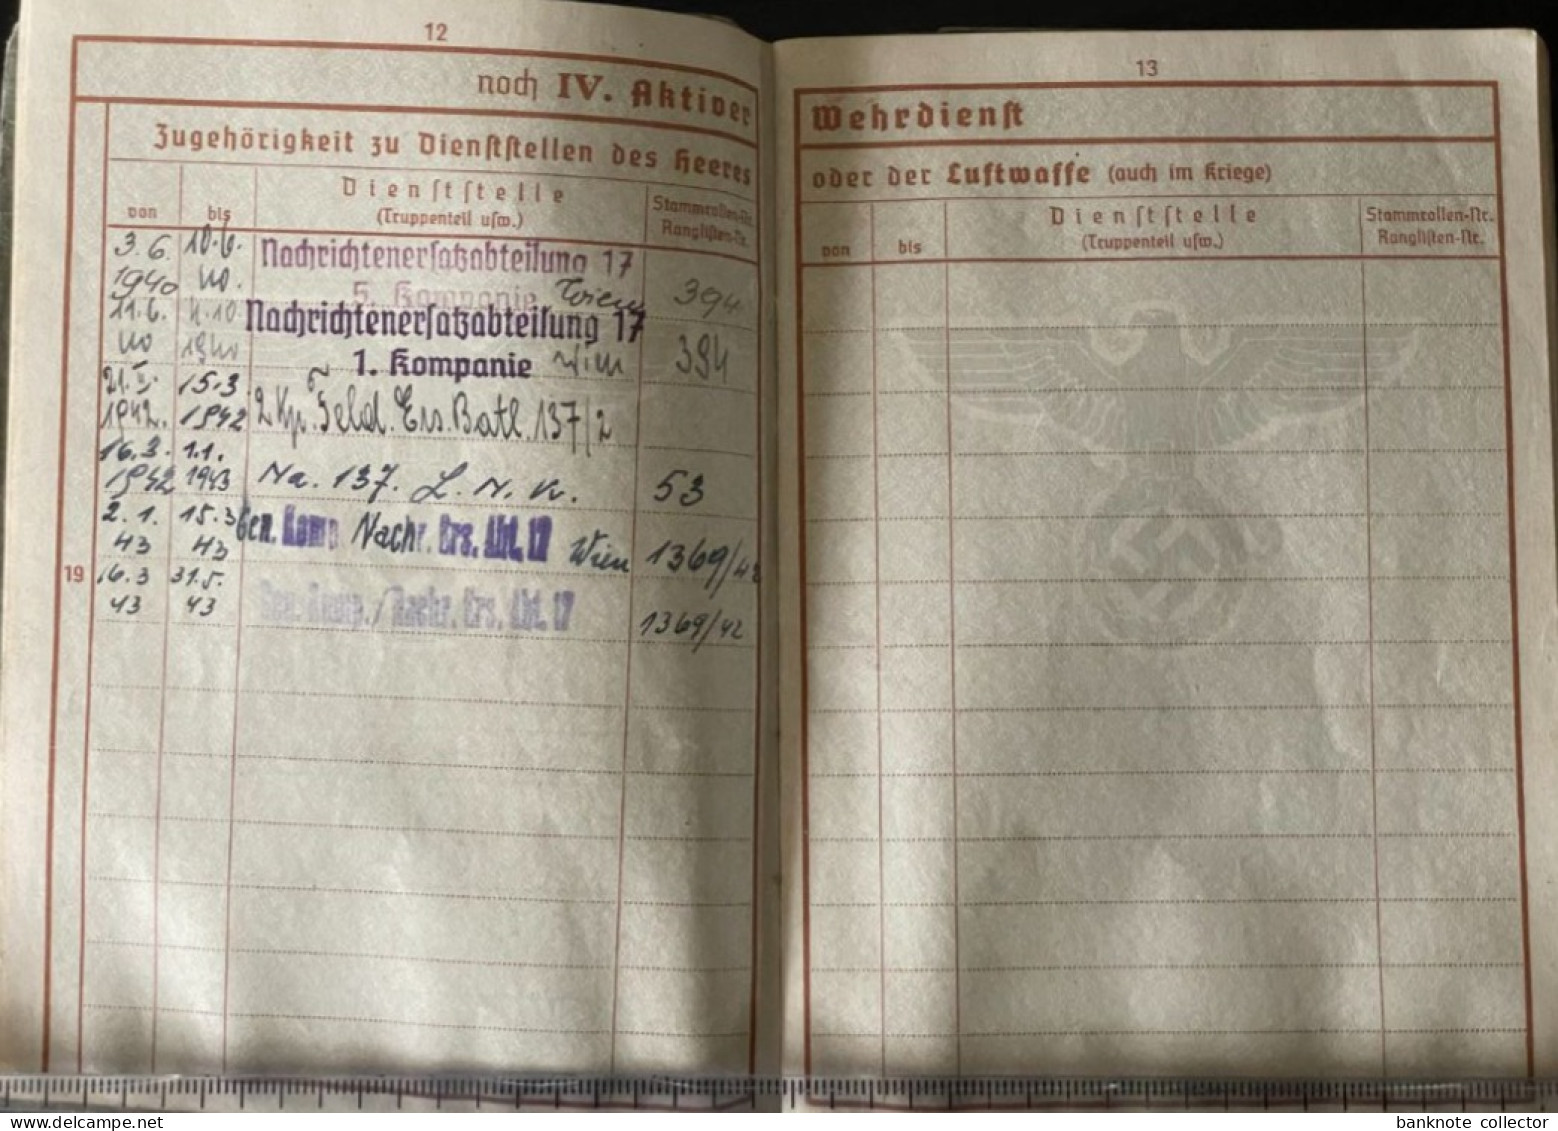 12
noch IV. Aktiver
Zugehörigkeit zu Dienststellen des Heeres
von
bis
Dienststelle
(Truppenteil usw.)
Stammrollen-Nr.
Ranglisten-Nr.
3.6. 10.6.
1940 40.
Nachrichtenersatzabteilung 17
5. Kompanie Wien
394
11.6. 4.10
40 1940
Nachrichtenersatzabteilung 17
1. Kompanie Wien
394
21.2. 15.3.
1942. 1942
2 Kp. Feld. Ers. Batl. 137/2
16.3. 1.1.
1942 1943
Na. 137. L. N. K.
53
2.1. 15.3
43 43
Gen. Komp. Nachr. Ers. Abt. 17 Wien
1369/42
19
16.3 31.5.
43 43
Gen. Komp. / Nachr. Ers. Abt. 17
1369/42
13
Wehrdienst
oder der Luftwaffe (auch im Kriege)
von
bis
Dienststelle
(Truppenteil usw.)
Stammrollen-Nr.
Ranglisten-Nr.
www.delcampe.net
banknote collector